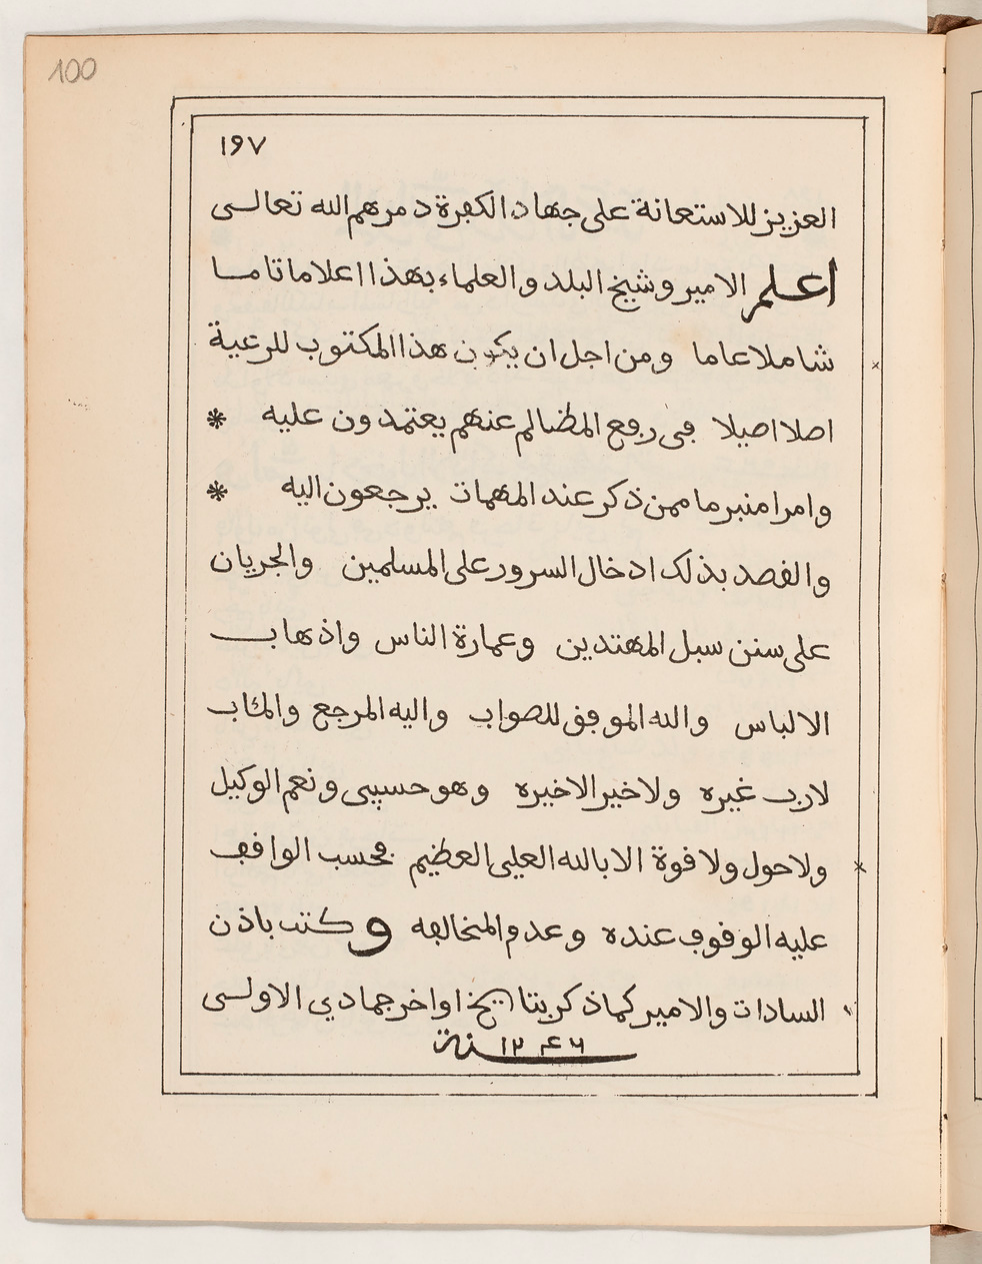 100
١٩٧
العزيز للاستعانة على جهاد الكفرة دمرهم الله تعالى
أعلم الامير وشيخ البلد والعلماء بهذا اعلاما تاما
شاملا عاما ومن اجل ان يكون هذا المكتوب للرعية
اصلا اصيلا في رفع المضالم عنهم يعتمدون عليه *
وامرا منبرما ممن ذكر عند المهمات يرجعون اليه *
والقصد بذلك ادخال السرور على المسلمين والجريان
على سنن سبل المهتدين وعمارة الناس واذهاب
الالباس والله الموفق للصواب واليه المرجع والمئاب
لارب غيره ولا خير الا خيره وهو حسيبى ونعم الوكيل
ولا حول ولا قوة الا بالله العلي العظيم فحسب الواقف
عليه الوقوف عنده وعدم المخالفه وكتب باذن
السادات والامير كماذكر بتاريخ اواخر جمادي الاولى
سنة ١٢٤٦